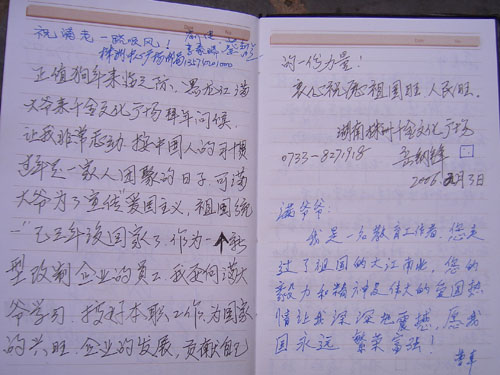 祝满老一路顺风!
株洲
正值狗年来临之际、黑龙江满
大爷来千金文化广场拜年问候.
让我非常感动.按中国人的习惯
过年是一家人团聚的日子,可满
大爷为了宣传"爱国主义,祖国统
一"已三年没回家了.作为一个新
型改制企业的员工.我要向满大
爷学习.搞好本职工作.为国家
的兴旺.企业的发展,贡献自己
的一份力量!
衷心祝愿祖国旺人民旺.
湖南株洲千金文化广场
0733-8271918
2006 2月3日
满爷爷:
我是一名教育工作者.您走
过了祖国的大江南北,您的
毅力和精神及伟大的爱国热
情让我深深地震撼,愿我
国永远繁荣富强!